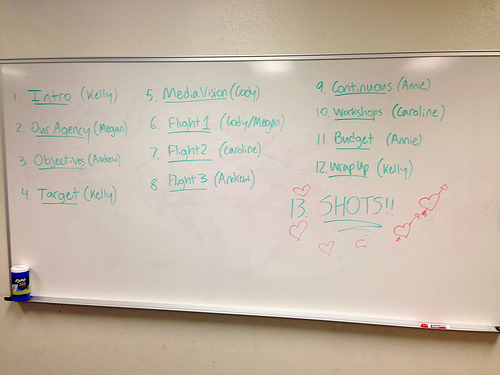 1. Intro (Kelly)
2. Our Agency (Megan)
3. Objectives (Andrew)
4. Target (Kelly)
5. Media Vision (Cody)
6. Flight 1 (Cody/Megan)
7. Flight 2 (Caroline)
8. Flight 3 (Andrew)
9. Continuous (Annie)
10. Workshops (Caroline)
11. Budget (Annie)
12. Wrap Up (Kelly)
13. SHOTS!!